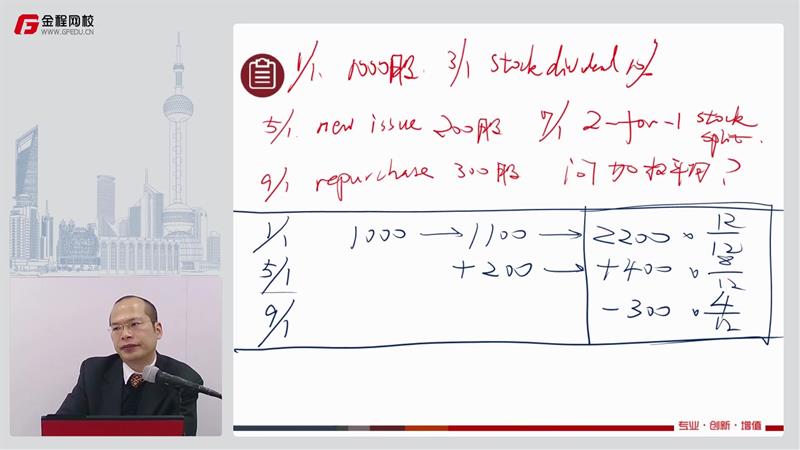 金程网校
WWW.GFEDU.CN
1/1. 1000股. 3/1 stock dividend 10%
5/1. new issue 200股 7/1 2-for-1 stock split.
9/1 repurchase 300股 问加权平均?
1/1 1000 → 1100 → 2200 · 12/12
5/1 +200 → +400 · 8/12
9/1 -300 · 4/12
专业·创新·增值